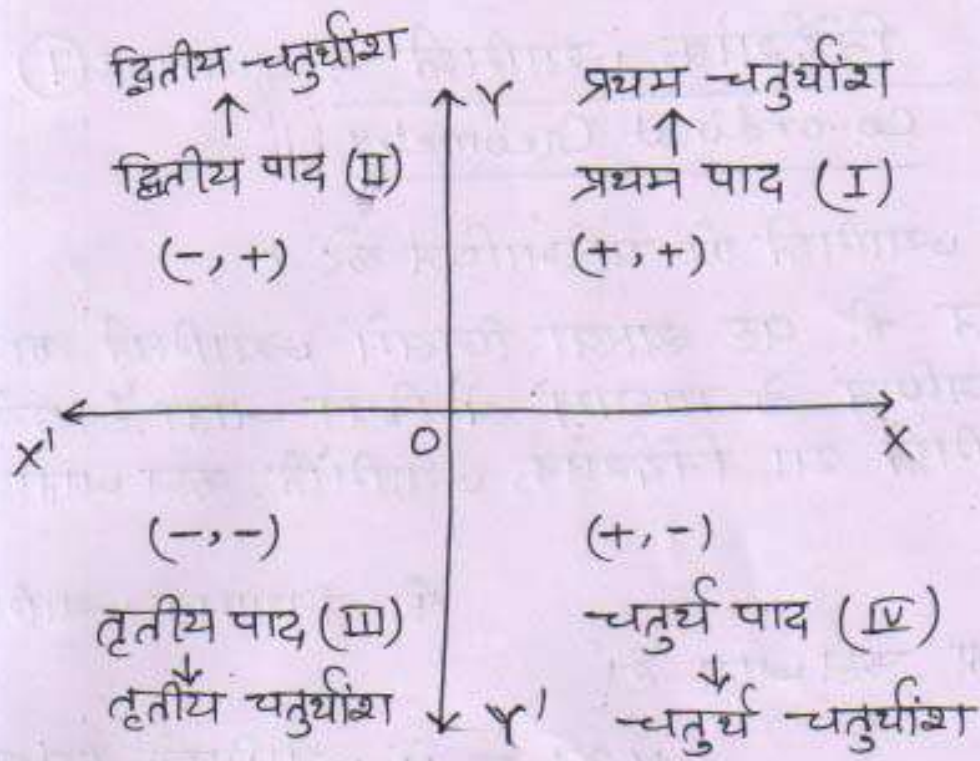 द्वितीय चतुर्थांश
↑
द्वितीय पाद (II)
(-, +)
Y
प्रथम चतुर्थांश
↑
प्रथम पाद (I)
(+, +)
X'
O
X
(-, -)
तृतीय पाद (III)
↓
तृतीय चतुर्थांश
Y'
(+, -)
चतुर्थ पाद (IV)
↓
चतुर्थ चतुर्थांश